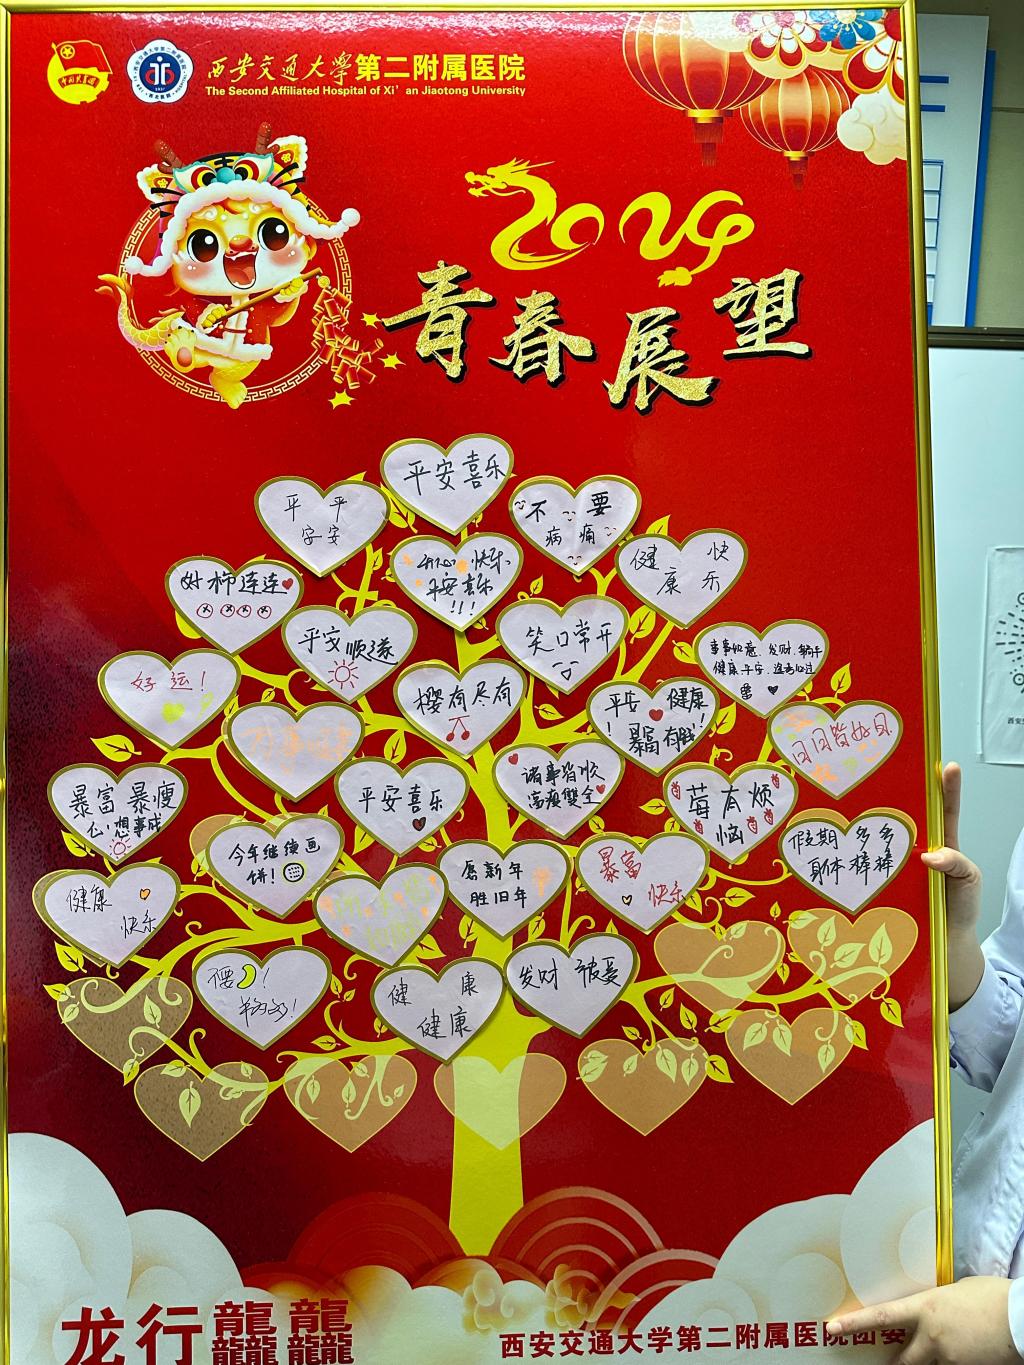 中国共青团
西安交通大学第二附属医院
The Second Affiliated Hospital of Xi'an Jiaotong University
2024
青春展望
平安喜乐
平平
安安
不要
病痛
快乐
平安喜乐
!!!
健快
康乐
好柿连连
平安顺遂
笑口常开
事事如意、发财、躺平
健康平安、逢考必过
好运!
樱有尽有
平安健康
!暴富有钱!!
万事如意
日日皆好日
暴富暴瘦
心想事成
平安喜乐
诸事皆顺
富瘦双全
莓有烦
恼
假期多多
身体棒棒
今年继续画
饼!
愿新年
胜旧年
暴富
快乐
健康
快乐
腰!
发财被爱
健康
健康
龙行龘龘
西安交通大学第二附属医院团委